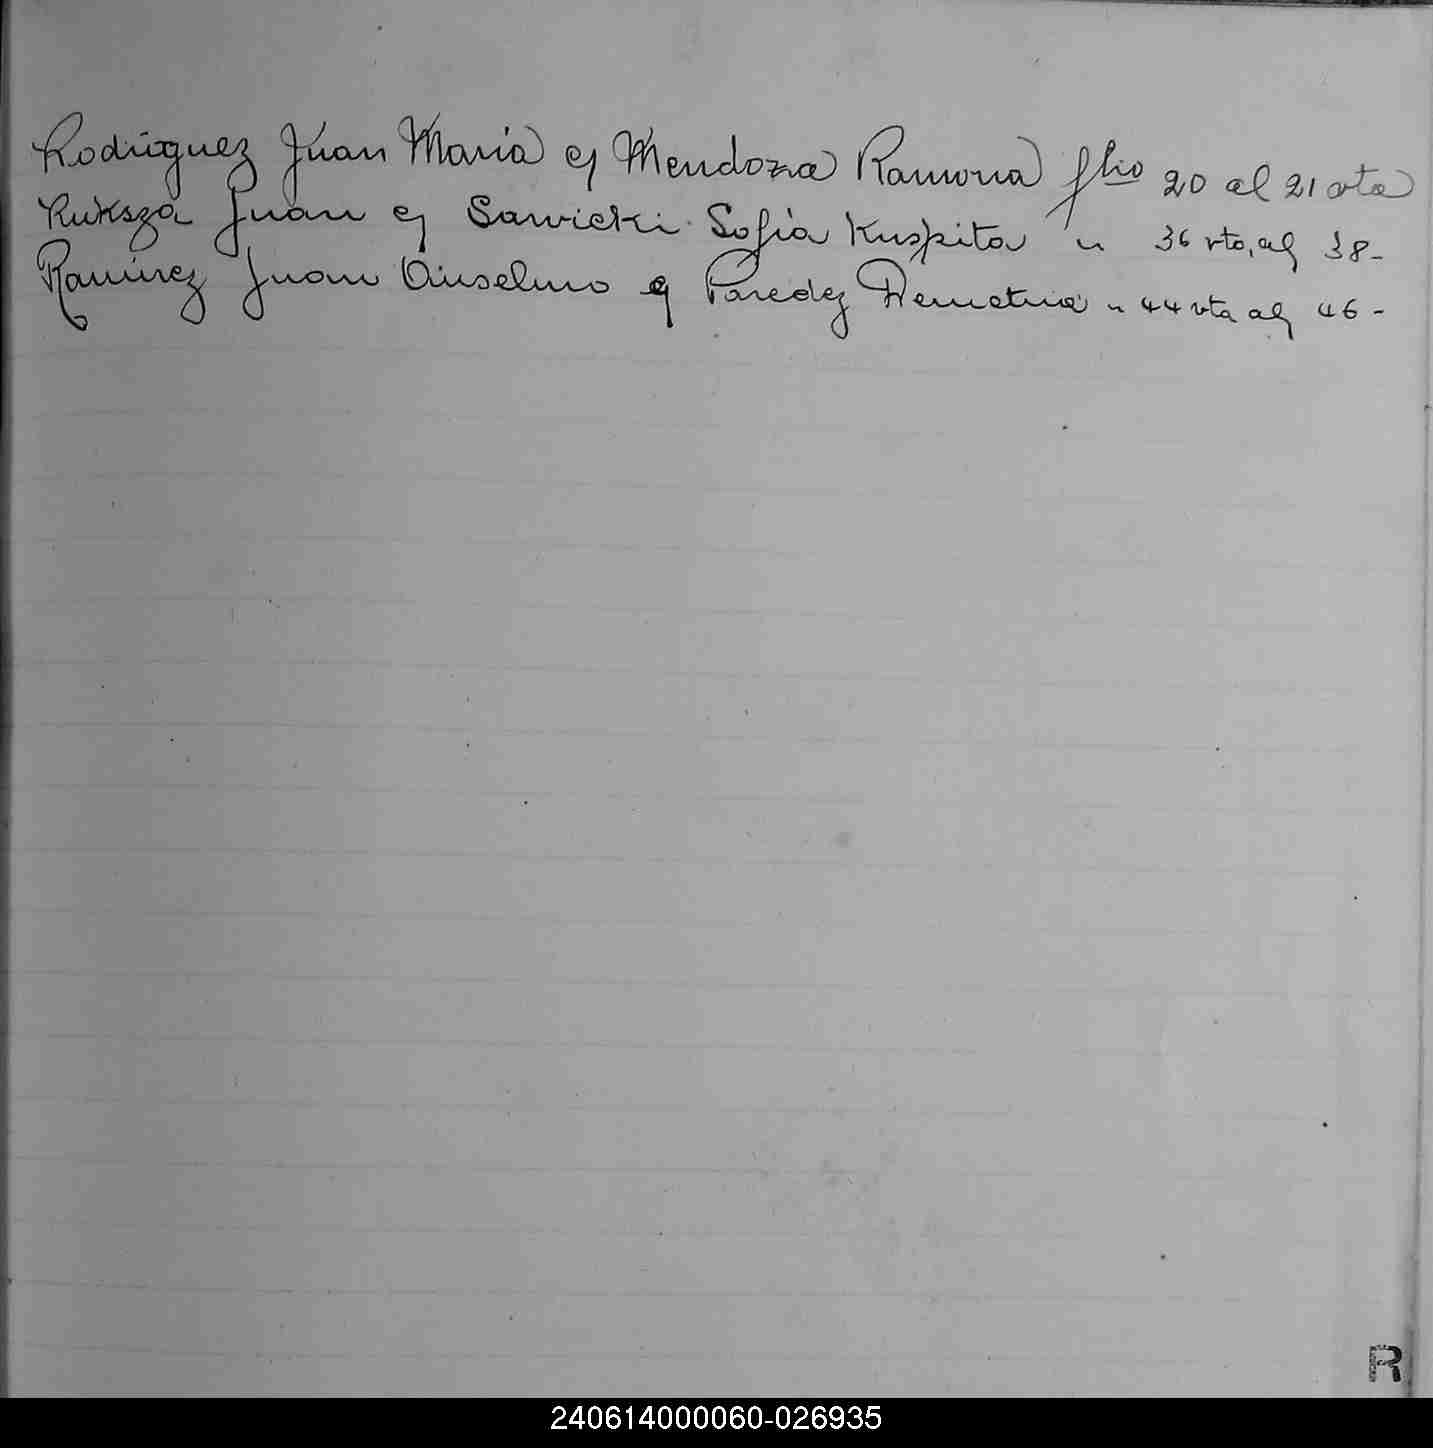 Rodriguez Juan Maria y Mendoza Ramona flio 20 al 21 vta
Kuksza Juan y Sawicki Sofia Kuspita " 36 vto, al 38-
Ramirez Juan Anselmo y Paredez Demetria " 44 vta al 46-
R
240614000060-026935